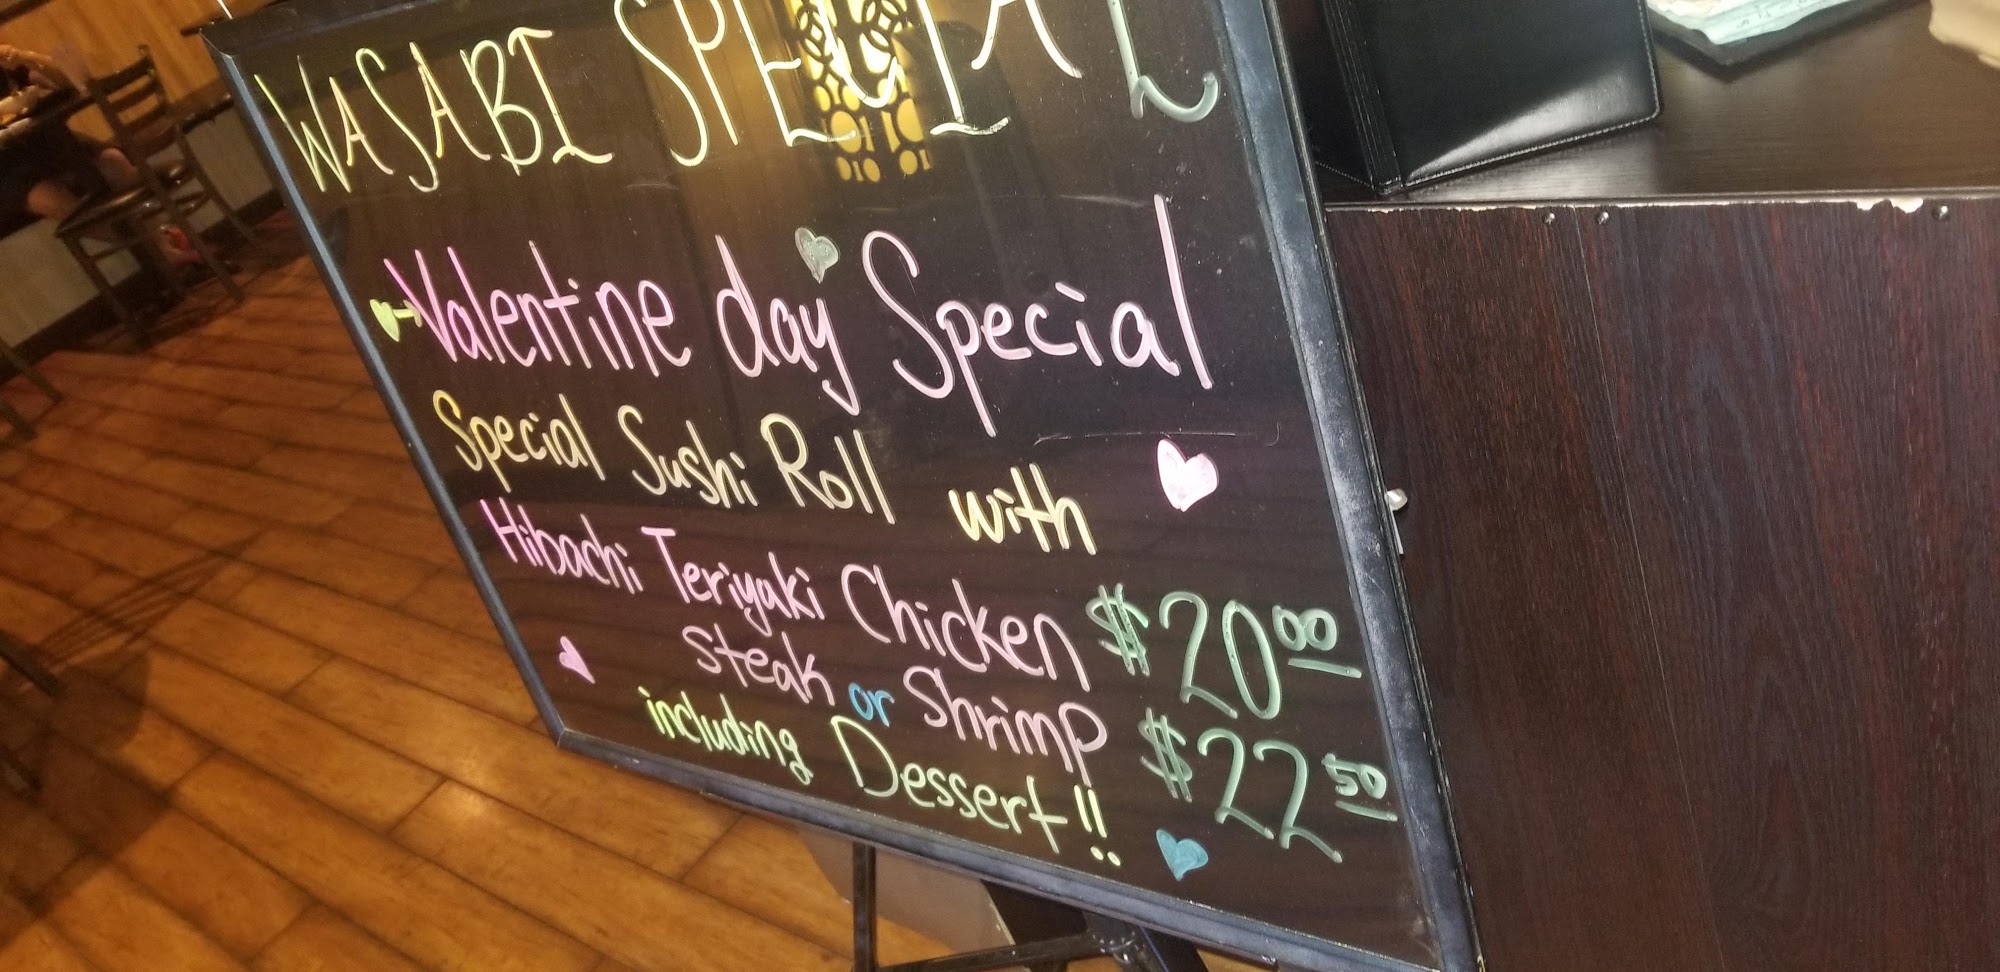 WASABI SPECIAL
Valentine day Special
Special Sushi Roll with
Hibachi Teriyaki Chicken $20.00
Steak or Shrimp $22.50
including Dessert!!